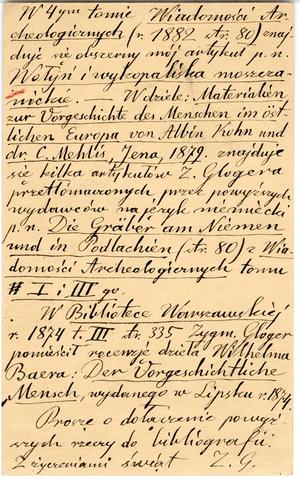 W 4ym tomie Wiadomości Ar-
cheologicznych (r. 1882 str. 80) znaj-
duje się obszerny mój artykuł p. n.
Wołyń i wykopaliska moszcza-
nickie. — W dziele: Materialien
zur Vorgeschichte des Menschen im öst-
lichen Europa von Albin Kohn und
dr. C. Mehlis, Jena, 1879. znajduje
się kilka artykułów Z. Glogera
przetłomaczonych przez powyższych
wydawców na język niemiecki
p. n. Die Gräber am Niemen
und in Podlachien (str. 80) z Wia-
domości Archeologicznych tomu
I i III go.
W Bibliotece Warszawskiej
r. 1874 t. III str. 335 Zygm. Gloger
pomieścił recenzję dzieła Wilhelma
Baera: Der Vorgeschichtliche
Mensch, wydanego w Lipsku r. 1874.
Proszę o dołączenie powyż-
szych rzeczy do bibliografii.
Z życzeniami świąt Z. G.